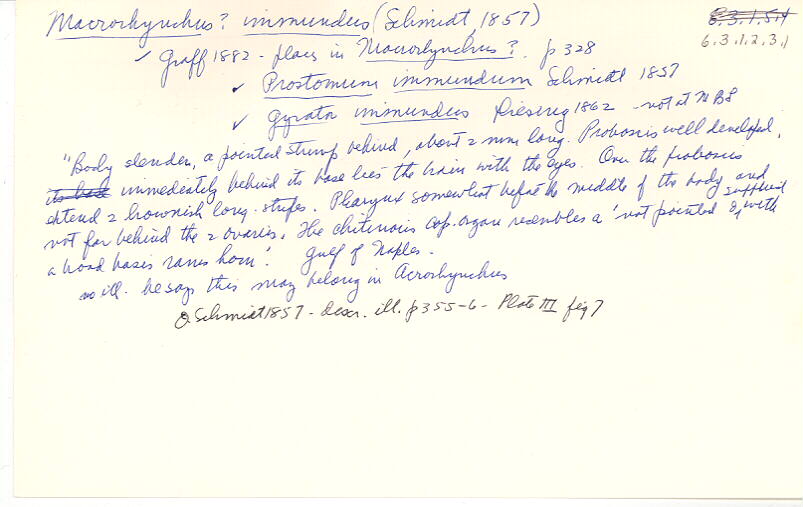 Macrorhynchus? immundus (Schmidt, 1857)
6.3.1.5.4
6.3.1.2.3.1
✓ Graff 1882 - places in Macrorhynchus? p 328
✓ Prostomum immundum Schmidt 1857
✓ Gyrator immundus Diesing 1862 - not at MBL
"Body slender, a pointed stump behind, about 2 mm long. Proboscis well developed,
its bas immediately behind its base lies the brain with the eyes. Over the proboscis
extend 2 brownish long. stripes. Pharynx somewhat before the middle of the body and
not far behind the 2 ovaries. The chitinous cop. organ resembles a 'not pointed & with
a broad basis rams horn'. Gulf of Naples.
no ill. he says this may belong in Acrorhynchus
O Schmidt 1857 - descr. ill. p 355-6 - Plate III fig 7